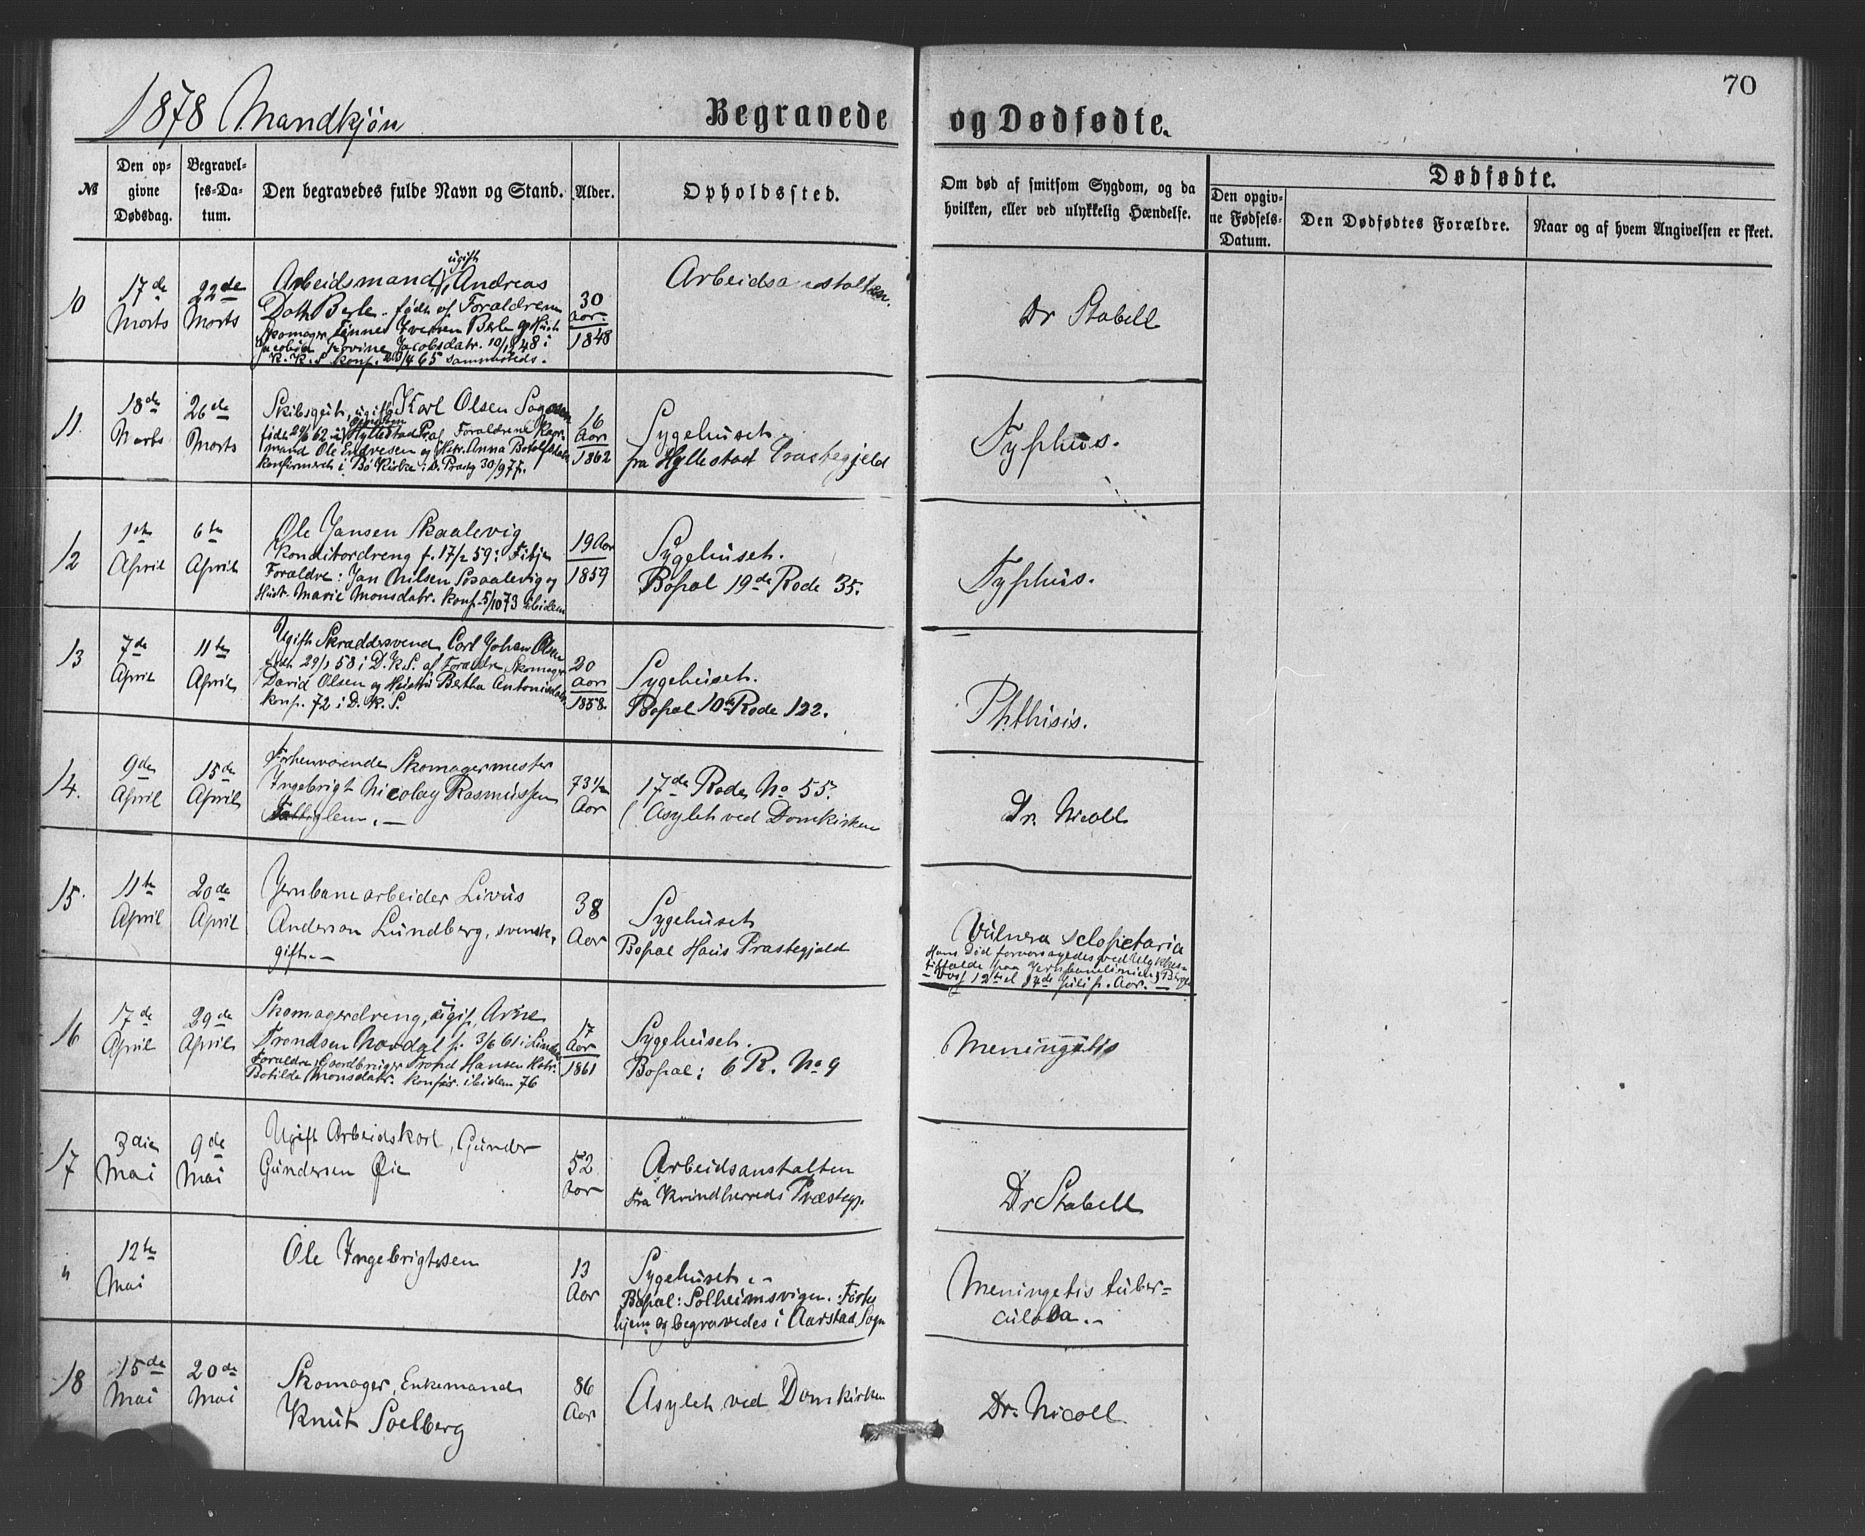 70
1878 Mandkjøn
Begravede og Dødfødte.
№
Den op-
givne
Dødsdag.
Begravel-
ses-Da-
tum.
Den begravedes fulde Navn og Stand.
Alder.
Opholdssted.
Om død af smitsom Sygdom, og da
hvilken, eller ved ulykkelig Hændelse.
Dødfødte.
Den opgiv-
ne Fødsels-
Datum.
Den Dødfødtes Forældre.
Naar og af hvem Angivelsen er skeet.
10
17de
Marts
22de
Marts
ugift
Arbeidsmand, Andreas
Berle. født af Forældrene
Skomager Tønnes Iversen Berle og Hust.
Jacobsdatr. 10/ 48 i
K. K. S konf. 65 sammesteds.
30
Aar
1848
Arbeidsanstalten.
Dr Stabell
11.
18de
Marts
26de
Marts
Skibsgut, ugift Karl Olsen
født 29/6 62 i Hyllestad Præ Forældrene
mand Ole og Hstr. Anna
konfirmeret i Bø Kirke i D. Præstg 30/9 77.
16
Aar
1862
Sygehuset.
fra Hyllestad Præstegjeld
Typhus.
12
1ste
April
6te
April
Ole Jansen Skaalevig
Konditordreng f. 17/2 59 i Fitje
Forældre: Jan Nilsen og
Hust. Marie Monsdatr. konf. 5/10 73 ibidem
19 Aar
1859
Sygehuset.
Bopæl 19de Rode 35.
Typhus.
13
7de
April
11te
April
Ugift Skræddersvend Carl Johan Olsen
født 29/1 58 i D.K.S. af Forældre Skomager
David Olsen og Hustru Bertha
konf. 72 i D. K. S.
20
Aar
1858.
Sygehuset.
Bopæl 10de Rode 122.
Phthisis.
14.
9de
April
15de
April
Forhenværende Skomagermester
Ingebrigt Nicolay Rasmussen
73 1/2
Aar
17de Rode No 55.
(Asylet ved Domkirken
Dr. Nicoll
15.
11te
April
20de
April
Jernbanearbeider Livus
Anderson Lundberg, svensk,
gift.
38
Aar
Sygehuset
Bopæl Haus Præstegjæld
Vulnera sclopetaria
Hans Død foraarsagedes ved Ulykkes-
tilfælde paa Jernbanelinien
Voss 12te Juli f. Aar.
16
17de
April
29de
April
Skomagerdreng, ugift, Arne
Trondsen Nordal f. 3/6 61 i
Forældre: Gaardbruger Trond Hansen Hstr.
Botilde Monsdatr. konfir. ibidem 76
17
Aar
1861
Sygehuset.
Bopæl: 6 R. No 9
Meningitis
17
3die
Mai
9de
Mai
Ugift Arbeidskarl, Gunder
Gundersen Øie
52
Aar
Arbeidsanstalten
Fra Kvindherreds Præstegj.
Dr Stabell
"
12te
Mai
Ole Ingebrigtsen
13
Aar
Sygehuset.
Bopæl: Solheimsvigen. Førtes
hjem og begravedes i Aarstad Sogn
Meningetis tuber-
culosa.
18
15de
Mai
20de
Mai
Skomager, Enkemand
Knut Soelberg
86
Aar
Asylet ved Domkirken
Dr. Nicoll